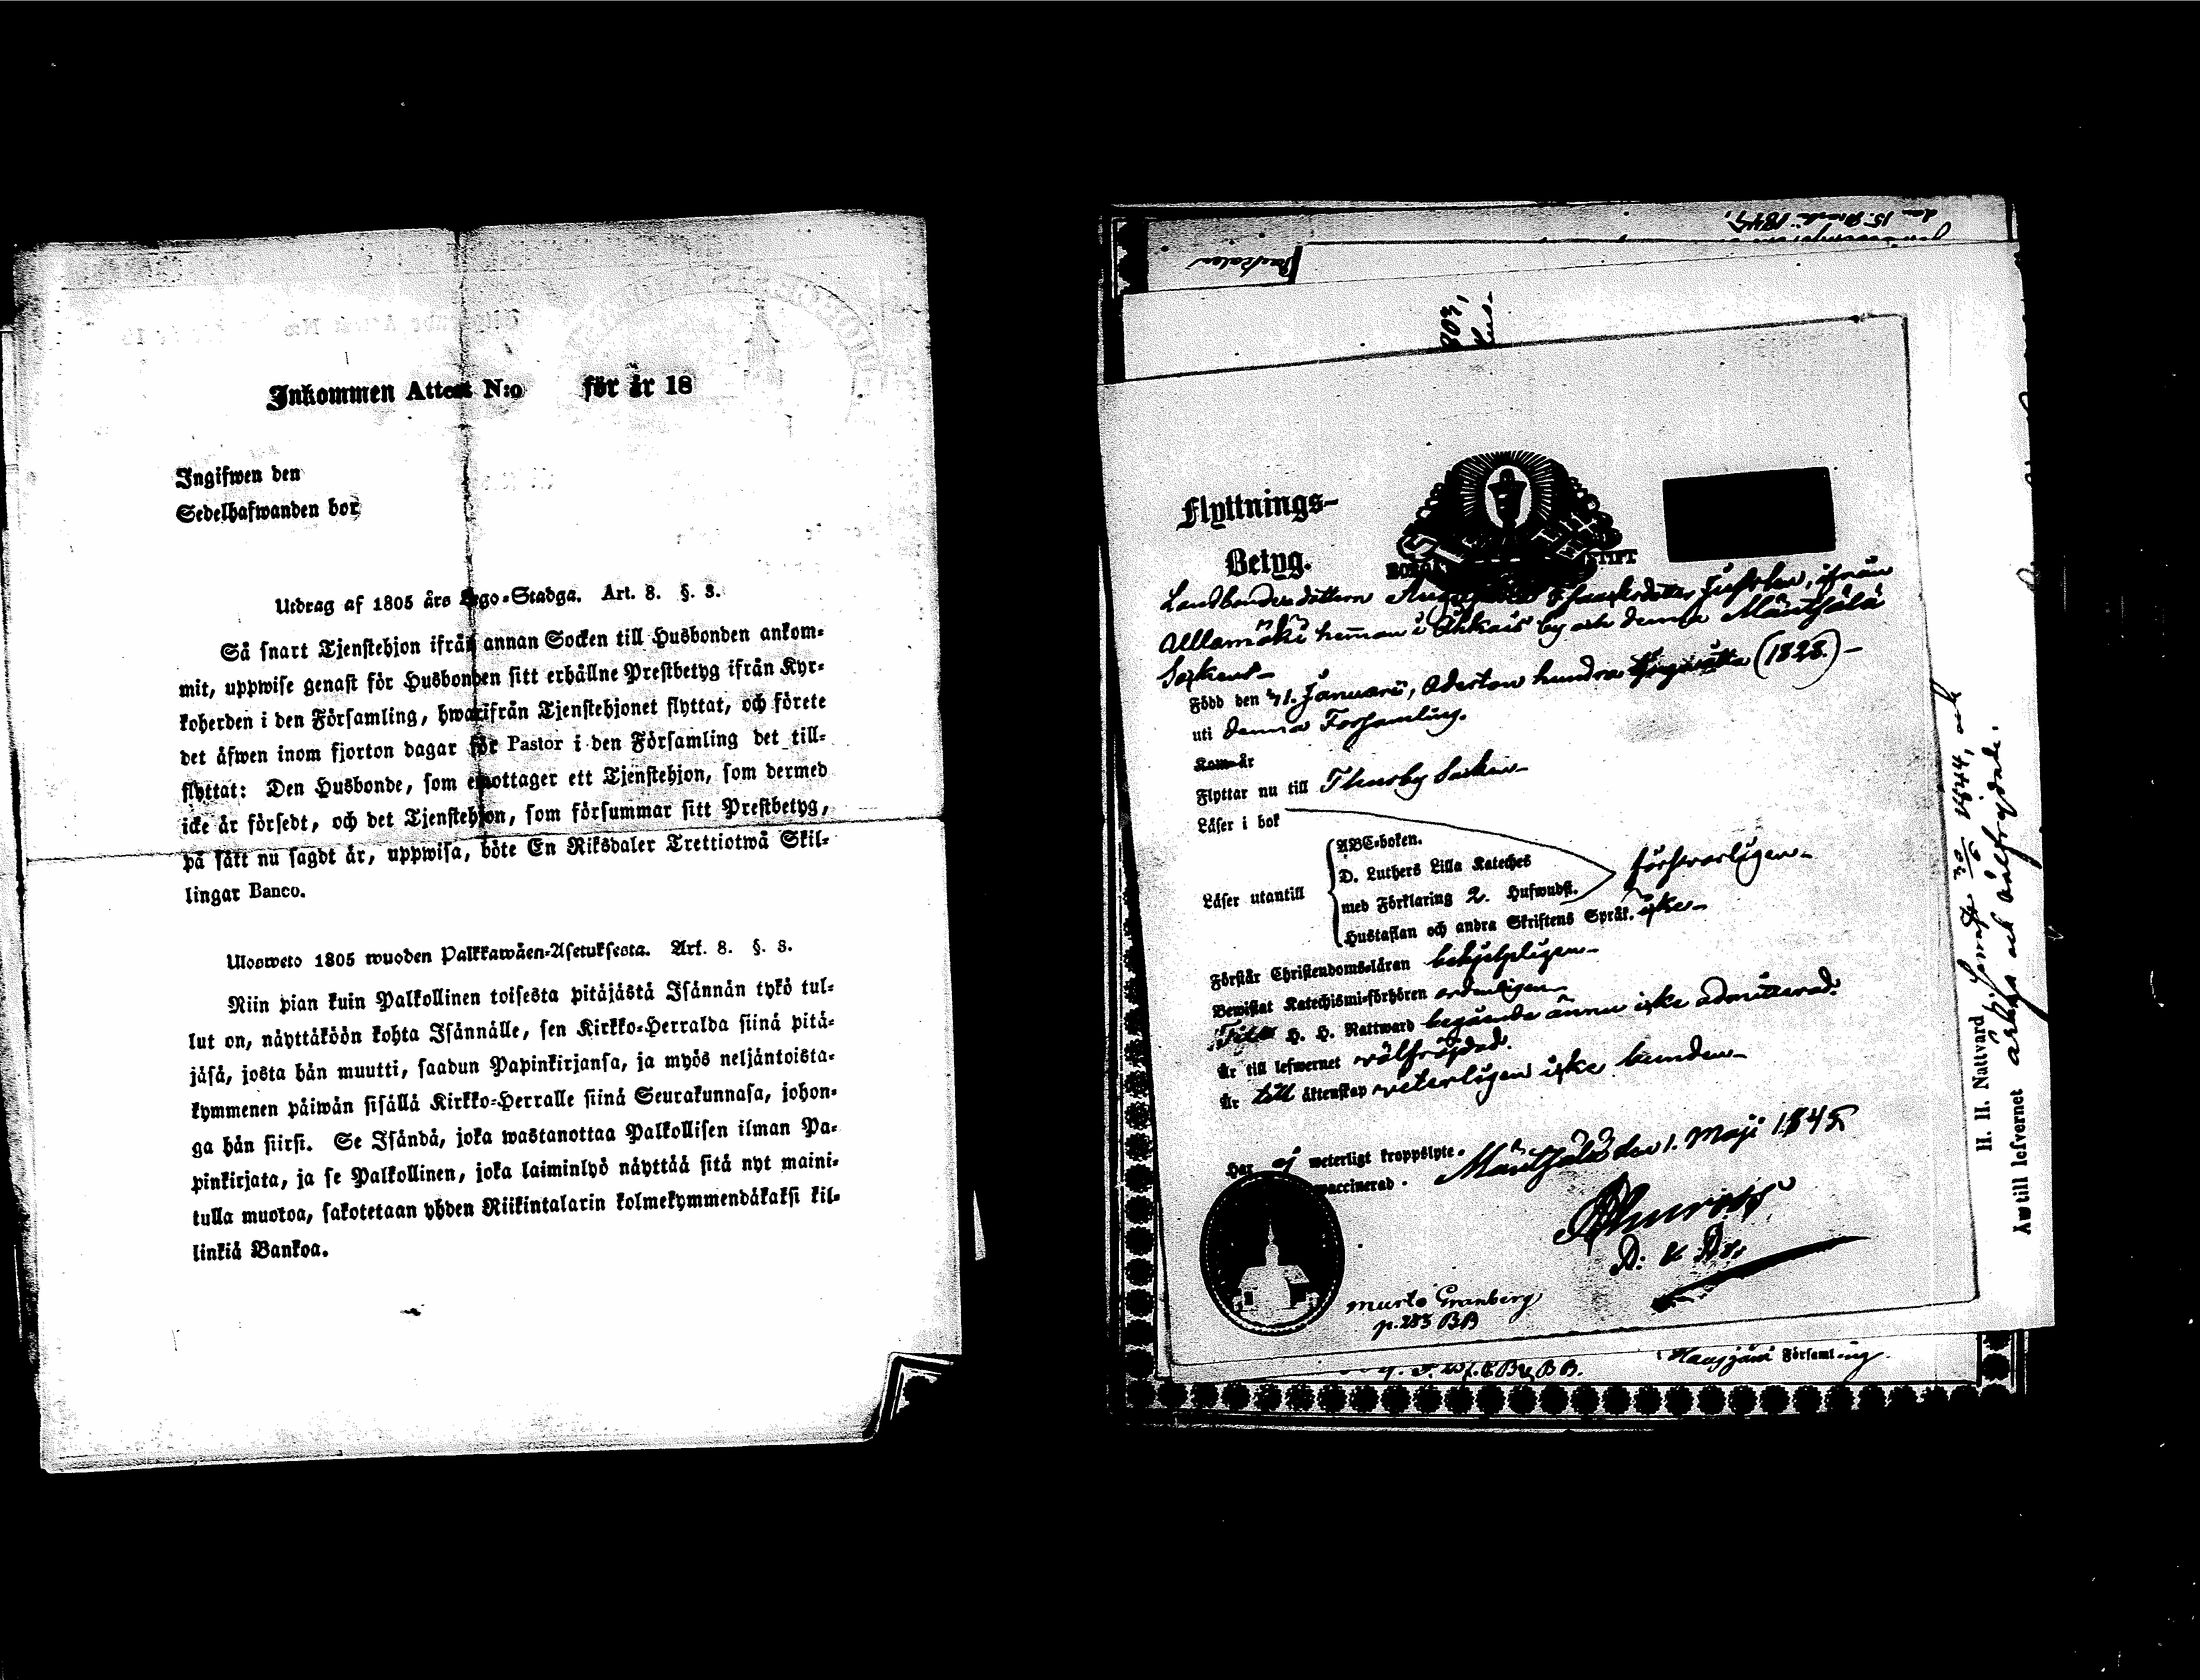 Inkommen Attest N:o för år 18
Ingifwen den
Sedelhafwanden bor
Utdrag af 1805 års Lego-Stadga. Art. 8. §. 3.
Så snart Tjenstehjon ifrån annan Socken till Husbonden ankom-
mit, uppwise genast för Husbonden sitt erhållne Prestbetyg ifrån Kyr-
koherden i den Församling, hwarifrån Tjenstehjonet flyttat, och förete
det äfwen inom fjorton dagar för Pastor i den Församling det till-
flyttat: Den Husbonde, som emottager ett Tjenstehjon, som dermed
icke är försedt, och det Tjenstehjon, som försummar sitt Prestbetyg,
på sätt nu sagdt är, uppwisa, böte En Riksdaler Trettiotwå Skil-
lingar Banco.
Ulosweto 1805 wuoden Palkkawäen-Asetuksesta. Art. 8. §. 3.
Niin pian kuin Palkollinen toisesta pitäjästä Isännän tykö tul-
lut on, näyttäköön kohta Isännälle, sen Kirkko-Herralda siinä pitä-
jäsä, josta hän muutti, saadun Papinkirjansa, ja myös neljäntoista-
kymmenen päiwän sisällä Kirkko-Herralle siinä Seurakunnasa, johon-
ga hän siirsi. Se Isändä, joka wastanottaa Palkollisen ilman Pa-
pinkirjata, ja se Palkollinen, joka laiminlyö näyttää sitä nyt maini-
tulla muotoa, sakotetaan yhden Riikintalarin kolmekymmendäkaksi kil-
linkiä Bankoa.
den 15
303,
Flyttnings-
Betyg.
BORGÅ STIFT
Landbondedottern ifrån
Allamäki heman i by och denna Mäntsälä
Sockens
Född den 21. Januarii, Aderton hundra (1828.)
uti denna Församling.
är
Flyttar nu till Thusby Socken
Läser i bok
ABC-boken.
D. Luthers Lilla Kateches
Läser utantill med Förklaring 2. Hufwudst. försvarligen
Hustaflan och andra Skriftens Språk. icke
Förstår Christendoms-läran behjelpligen
Bewistat Katechismi-förhören ordentligen
H. H. Nattward begående ännu icke admitterad.
Är till lefwernet wälfrejdad.
Är till äktenskap veterligen icke bunden
Har ej weterligt kroppslyte.
vaccinerad. Mäntsälä den 1. Maji 1845
Murto Granberg
p. 283 BB
Hausjärvi Församling.
H. H. Nattvard 30/6 1844, och
Äm till lefvernet ärlig och wälfrejdad.